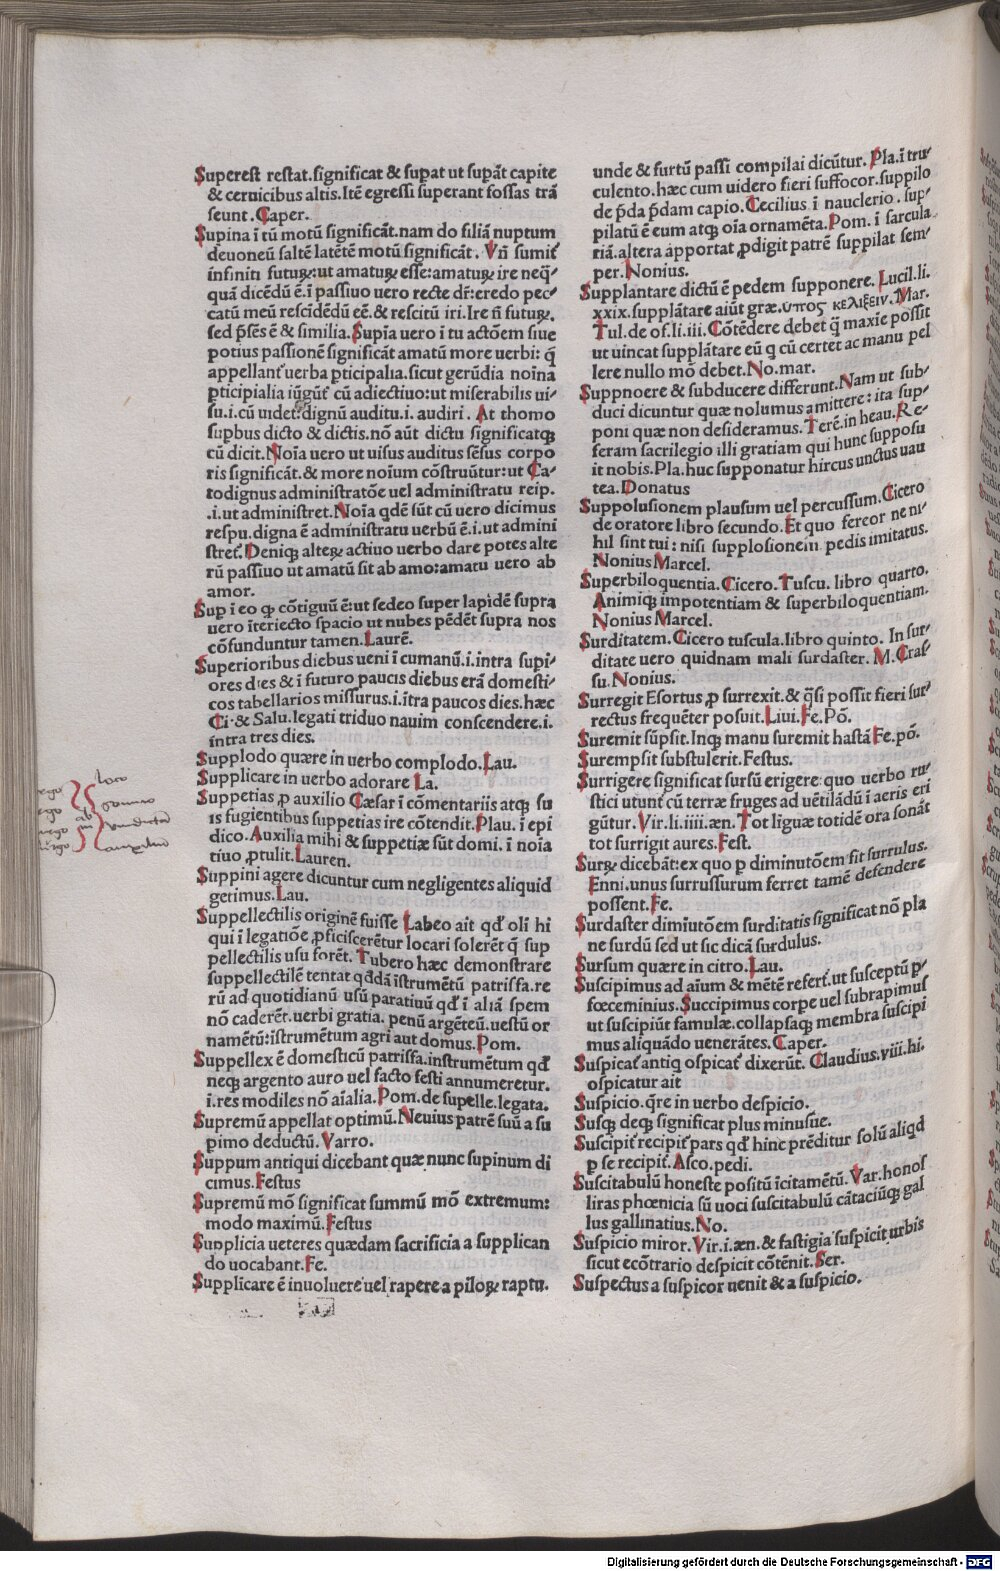 Superest restat.significat & supat ut supāt capite
& ceruicibus altis.Itē egressi superant fossas trā
seunt.Caper.
Supina ī tū motū significāt.nam do filiā nuptum
deuoneū saltē latētē motū significāt. Vñ sumit̃
infiniti futurꝝ:ut amaturꝝ esse:amaturꝝ ire neq̃
quā dicēdū ē.ī passiuo uero recte dr̄:credo pec-
catū meū rescīdēdū eē.& rescitū iri.Ire ñ futurꝝ.
sed p̄sēs ē & similia.Supīa uero ī tu actōem siue
potius passionē significāt amatū more uerbi: q̄
appellant̃ uerba pticipalia.sicut gerūdia noīna
pticipialia iūgūt̃ cū adiectiuo:ut miserabilis ui-
su.i.cū uidet̃:dignū auditu.i.audiri. At thomo
supbus dicto & dictis.nō aūt dictu significatqꝫ
cū dicit.Noīa uero ut uisus auditus sēsus corpo
ris significāt.& more noīum cōstruūtur:ut Ca-
todignus administratōe uel administratu reip.
.i.ut administret.Noīa qdē sūt cū uero dicimus
respu.digna ē administratu uerbū ē.i.ut admini
stret̃.Deniqꝫ alterꝝ actiuo uerbo dare potes alte
rū passiuo ut amatū sit ab amo:amatu uero ab
amor.
Sup ī eo qꝫ cōtiguū ē:ut sedeo super lapidē supra
uero īteriecto spacio ut nubes pēdēt supra nos
cōfunduntur tamen.Laurē.
Superioribus diebus ueni ī cumanū.i.intra supi-
ores dies & ī futuro paucis diebus erā domesti-
cos tabellarios missurus.i.ītra paucos dies.hæc
Ci.& Salu.legati triduo nauim conscendere.i.
intra tres dies.
Supplodo quære in uerbo complodo.Lau.
Supplicare in uerbo adorare La.
Suppetias ꝓ auxilio Cæsar ī cōmentariis atqꝫ su
is fugientibus suppetias ire cōtendit.Plau.ī epi
dico.Auxilia mihi & suppetiæ sūt domi.ī noīa
tiuo ꝓtulit.Lauren.
Suppini agere dicuntur cum negligentes aliquid
gerimus.Lau.
Suppellectilis originē fuisse Labeo ait qđ oli hi
qui ī legatiōe ꝓficiscerētur locari solerēt q̄ sup
pellectilis usu forēt.Tubero hæc demonstrare
suppellectilē tentat qđdā īstrumētū patrisfa.re
rū ad quotidianū usū paratiuū qđ ī aliā spem
nō caderēt.uerbi gratia.penū argēteū.uestū or
namētū:īstrumētum agri aut domus.Pom.
Suppellex ē domesticū patrisfa.instrumētum qđ
neqꝫ argento auro uel facto festi annumeretur.
i.res modiles nō aīalia.Pom.de supelle.legata.
Supremū appellat optimū.Neuius patrē suū a su
pimo deductū.Varro.
Suppum antiqui dicebant quæ nunc supinum di
cimus.Festus
Supremū mō significat summū mō extremum:
modo maximū.Festus
Supplicia ueteres quædam sacrificia a supplican
do uocabant.Fe.
Supplicare ē inuoluere uel rapere a pilorꝝ raptu.
unde & furtū passi compilai dicūtur. Pla.ī tru-
culento.hæc cum uidero fieri suffocor.suppilo
de p̄da p̄dam capio.Cecilius ī nauclerio.sup-
pilatū ē eum atqꝫ oīa ornamēta.Pom.ī sarcula
riā.altera apportat ꝓdigit patrē suppilat sem-
per.Nonius.
Supplantare dictū ē pedem supponere.Lucil.li.
xxix.supplātare aiūt græ.υπος κελιξειν.Mar.
Tul.de of.li.iii.Cōtēdere debet q̄ maxie possit
ut uincat supplātare eū q cū certet ac manu pel
lere nullo mō debet.No.mar.
Suppnoere & subducere differunt.Nam ut sub-
duci dicuntur quæ nolumus amittere: ita sup-
poni quæ non desideramus. Terē.in heau.Re-
feram sacrilegio illi gratiam qui hunc supposu
it nobis.Pla.huc supponatur hircus unctus uau
tea.Donatus
Suppolusionem plausum uel percussum.Cicero
de oratore libro secundo.Et quo fereor ne ni-
hil sint tui: nisi supplosionem pedis imitatus.
Nonius Marcel.
Superbiloquentia.Cicero.Tuscu. libro quarto.
Animiqꝫ impotentiam & superbiloquentiam.
Nonius Marcel.
Surditatem.Cicero tuscula.libro quinto. In sur-
ditate uero quidnam mali surdaster. M.Cras-
su.Nonius.
Surregit Esortus ꝓ surrexit.& q̄si possit fieri sur-
rectus frequēter posuit.Liui.Fe.Pō.
Suremit sūpsit.Inqꝫ manu suremit hastā Fe.pō.
Surempsit substulerit.Festus.
Surrigere significat sursū erigere quo uerbo ru-
stici utunt cū terræ fruges ad uētilādū ī aeris eri
gūtur.Vir.li.iiii.æn.Tot liguæ totidē ora sonāt
tot surrigit aures.Fest.
Surꝝ dicebāt:ex quo p diminutōem fit surrulus.
Enni.unus surrussurum ferret tamē defendere
possent.Fe.
Surdaster dimiutōem surditatis significat nō pla
ne surdū sed ut sic dicā surdulus.
Sursum quære in citro.Lau.
Suscipimus ad aīum & mētē refert̃.ut susceptū p-
fœceminius.Succipimus corpe uel subrapimus
ut suscipiūt famulæ.collapsaqꝫ membra suscipi
mus aliquādo uenerātes.Caper.
Suspicat̃ antiq ospicat̃ dixerūt. Claudius.viii.hi.
ospicatur ait
Suspicio.q̄re in uerbo despicio.
Susqꝫ deqꝫ significat plus minusūe.
Suscipit̃ recipit̃ pars qđ hinc prēditur solū aliqd
p se recipit̃.Asco.pedi.
Suscitabulū honeste positū īcitamētū.Var.honos
liras phœnicia sū uoci suscitabulū cātaciūqꝫ gal
lus gallinatius.No.
Suspicio miror.Vir.i.æn.& fastigia suspicit urbis
sicut ecōtrario despicit cōtēnit.Ser.
Suspectus a suspicor uenit & a suspicio.
loco
Digitalisierung gefördert durch die Deutsche Forschungsgemeinschaft - DFG